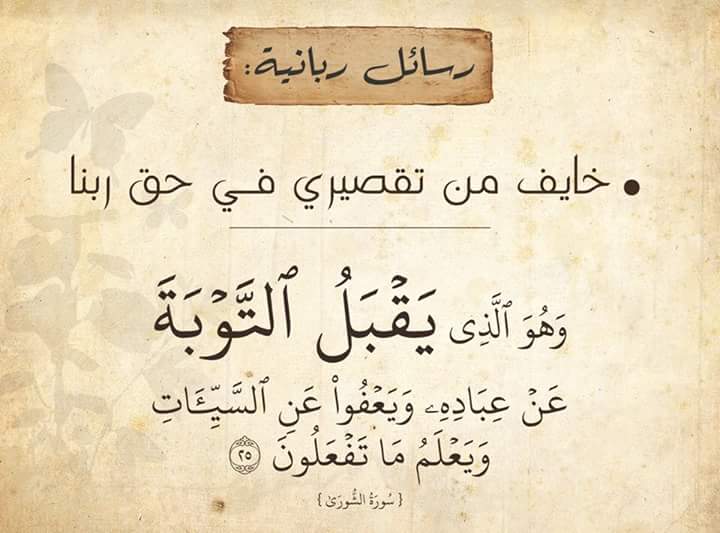 رسائل ربانية:
• خايف من تقصيري في حق ربنا
وَهُوَ ٱلَّذِى يَقْبَلُ ٱلتَّوْبَةَ
عَنْ عِبَادِهِۦ وَيَعْفُوا۟ عَنِ ٱلسَّيِّـَٔاتِ
وَيَعْلَمُ مَا تَفْعَلُونَ ٢٥
{ سُورَةُ الشُّورَىٰ }